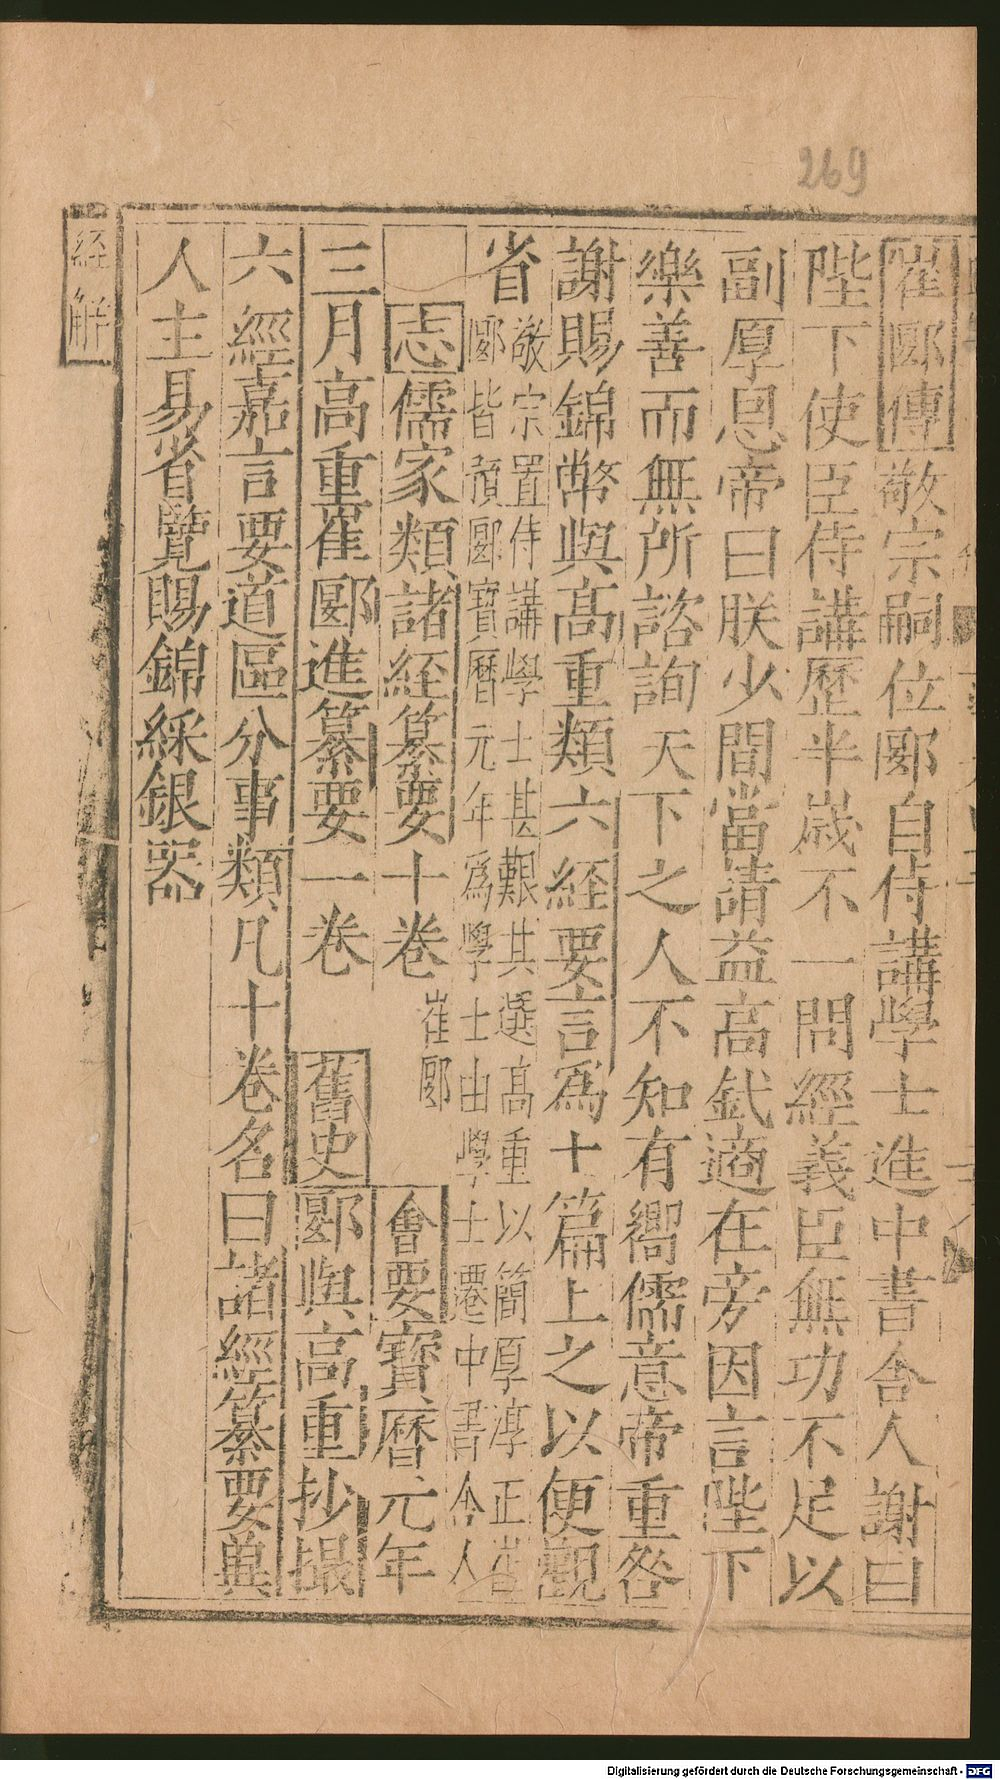 269
崔郾傳敬宗嗣位郾自侍講學士進中書舍人謝曰
陛下使臣侍講歷半歲不一問經義臣無功不足以
副厚恩帝曰朕少間當請益高釴適在旁因言陛下
樂善而無所諮詢天下之人不知有嚮儒意帝重咎
謝賜錦幣與高重類六経要言爲十篇上之以便觀
省敬宗置侍講學士甚艱其選高重以簡厚淳正崔
郾皆預郾寶曆元年爲學士由學士遷中書舍人
志儒家類諸経纂要十卷崔郾會要寶曆元年
三月高重崔郾進纂要一卷舊史郾與高重抄撮
六經嘉言要道區分事類凡十卷名曰諸經纂要冀
人主易省覽賜錦綵銀器
経解
Digitalisierung gefördert durch die Deutsche Forschungsgemeinschaft - DFG